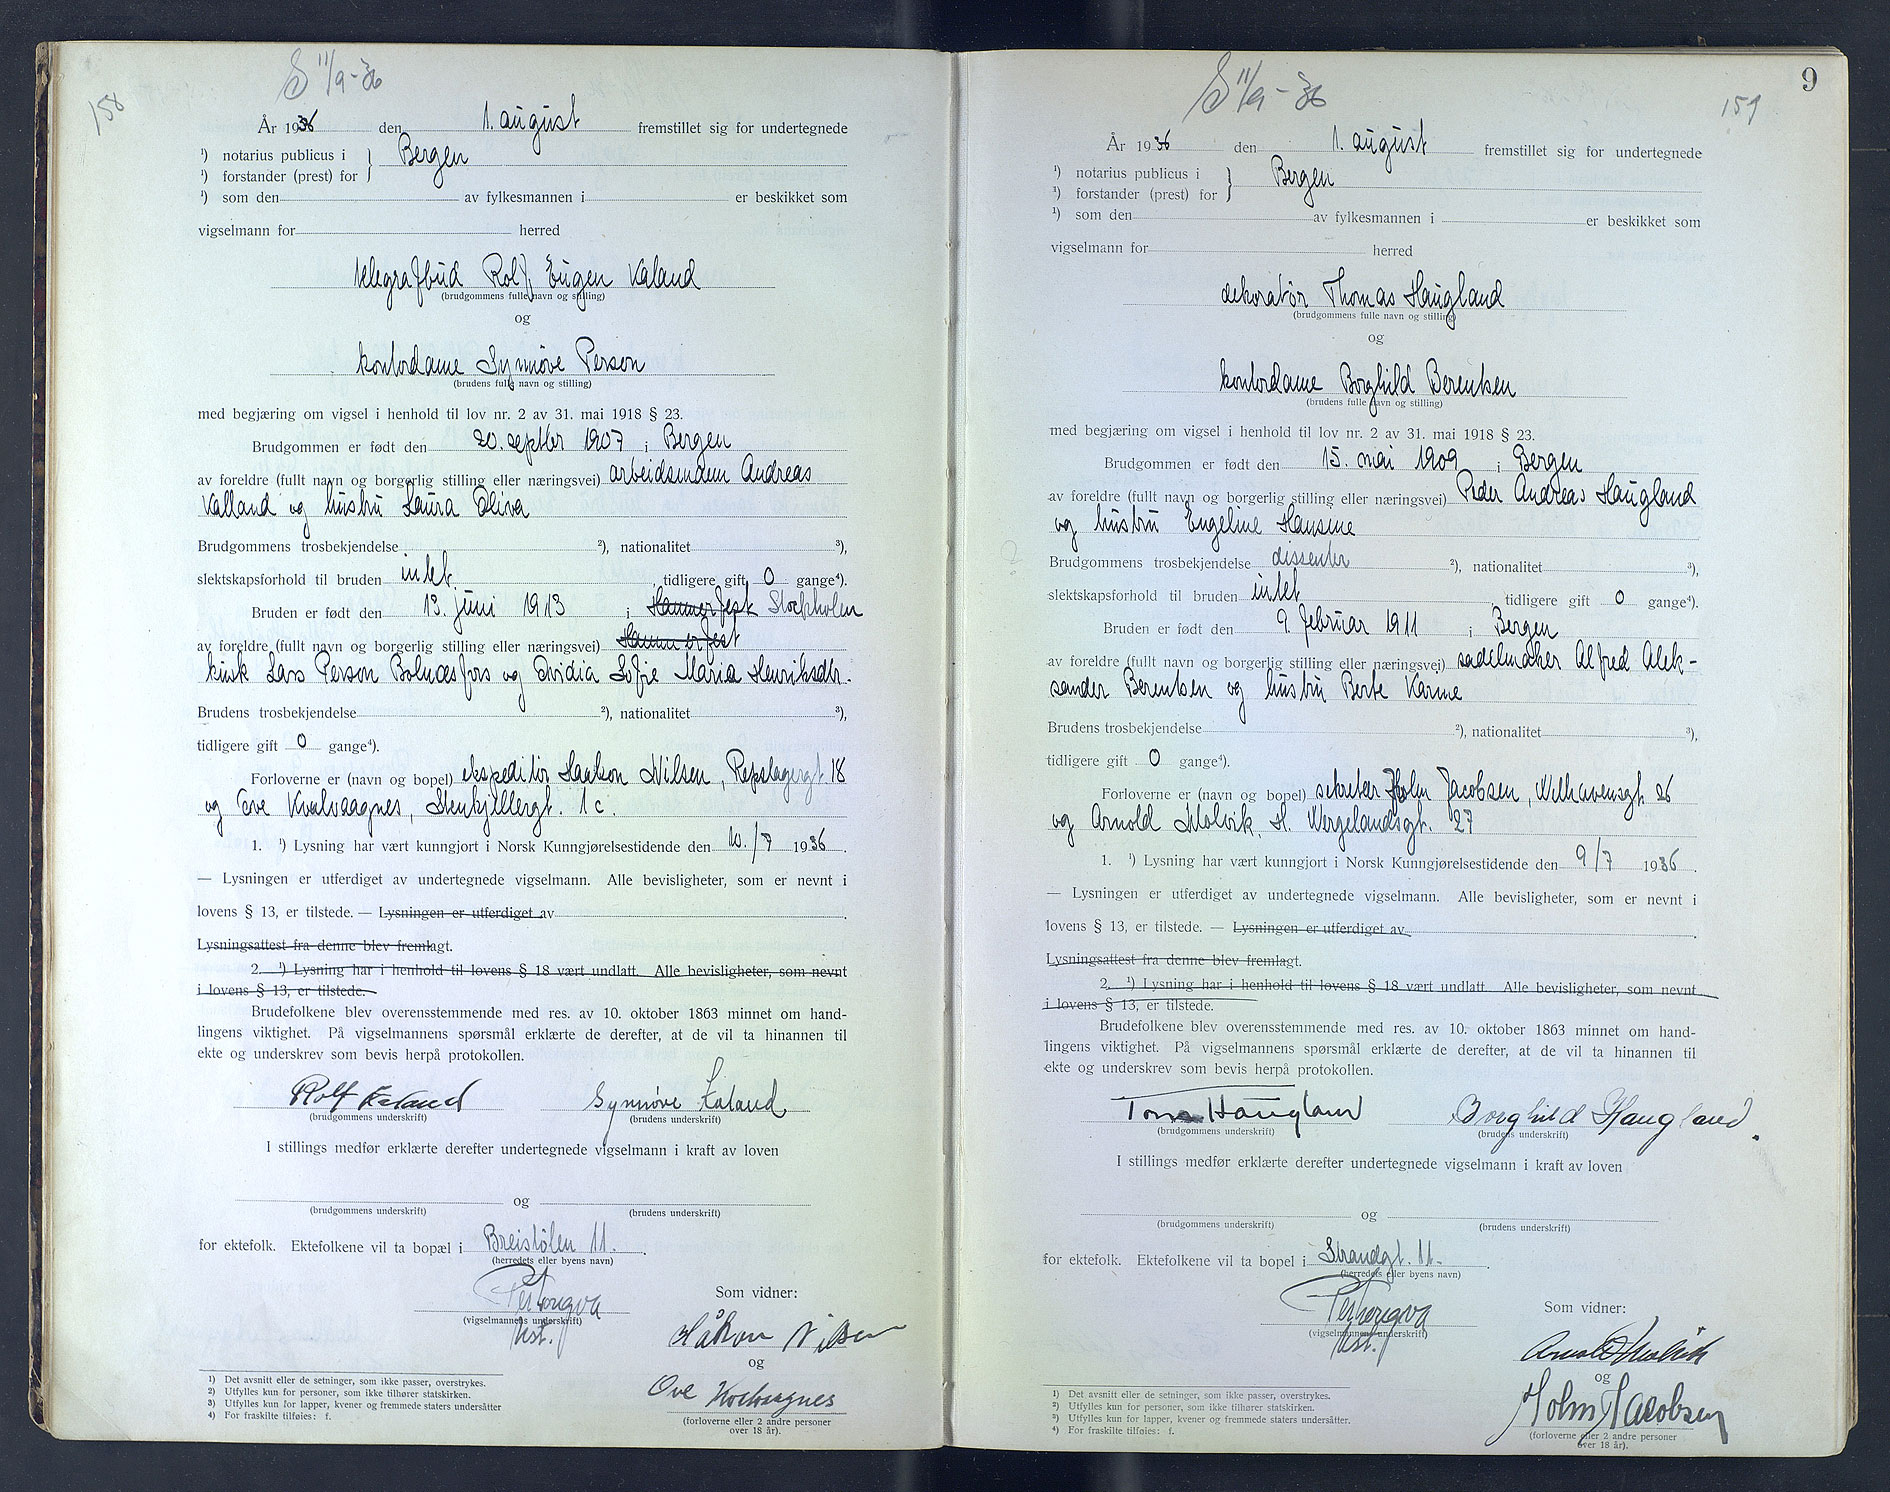 158
S 11/9-36
År 1936 den 1. august fremstillet sig for undertegnede
¹) notarius publicus i } Bergen
¹) forstander (prest) for
¹) som den av fylkesmannen i er beskikket som
vigselmann for herred
telegrafbud Rolf Eugen Kaland
(brudgommens fulle navn og stilling)
og
kontordame Synnøve Person
(brudens fulle navn og stilling)
med begjæring om vigsel i henhold til lov nr. 2 av 31. mai 1918 § 23.
Brudgommen er født den 20. septbr 1907 i Bergen
av foreldre (fullt navn og borgerlig stilling eller næringsvei) arbeidsmann Andreas
Kalland og hustru Laura Oliva
Brudgommens trosbekjendelse ²), nationalitet ³),
slektskapsforhold til bruden intet, tidligere gift 0 gange⁴).
Bruden er født den 13. juni 1913 i Hammerfest Stockholm
av foreldre (fullt navn og borgerlig stilling eller næringsvei) Hammerfest
kusk Lars Person Bolnæsfors og Ovidia Sofie Maria Henriksdtr.
Brudens trosbekjendelse ²), nationalitet ³),
tidligere gift 0 gange⁴).
Forloverne er (navn og bopel) ekspeditør Haakon Nilsen, Repslagergt. 18
og Ove Kvalvaagnes, Stenkjellergt. 1c.
1. ¹) Lysning har vært kunngjort i Norsk Kunngjørelsestidende den 10./7 1936.
— Lysningen er utferdiget av undertegnede vigselmann. Alle bevisligheter, som er nevnt i
lovens § 13, er tilstede. — Lysningen er utferdiget av .
Lysningsattest fra denne blev fremlagt.
2. ¹) Lysning har i henhold til lovens § 18 vært undlatt. Alle bevisligheter, som nevnt
i lovens § 13, er tilstede.
Brudefolkene blev overensstemmende med res. av 10. oktober 1863 minnet om hand-
lingens viktighet. På vigselmannens spørsmål erklærte de derefter, at de vil ta hinannen til
ekte og underskrev som bevis herpå protokollen.
Rolf Kaland Synnøve Kaland
(brudgommens underskrift) (brudens underskrift)
I stillings medfør erklærte derefter undertegnede vigselmann i kraft av loven
og
(brudgommens underskrift) (brudens underskrift)
for ektefolk. Ektefolkene vil ta bopæl i Breistølen 11.
(herredets eller byens navn)
(vigselmannens underskrift)
Kst.
Som vidner:
Håkon Nilsen
og
Ove Kvalvaagnes
(forloverne eller 2 andre personer
over 18 år).
¹) Det avsnitt eller de setninger, som ikke passer, overstrykes.
²) Utfylles kun for personer, som ikke tilhører statskirken.
³) Utfylles kun for lapper, kvener og fremmede staters undersåtter
⁴) For fraskilte tilføies: f.
9
159
S 11/9-36
År 1936 den 1. august fremstillet sig for undertegnede
¹) notarius publicus i } Bergen
¹) forstander (prest) for
¹) som den av fylkesmannen i er beskikket som
vigselmann for herred
dekoratør Thomas Haugland
(brudgommens fulle navn og stilling)
og
kontordame Borghild Berentsen
(brudens fulle navn og stilling)
med begjæring om vigsel i henhold til lov nr. 2 av 31. mai 1918 § 23.
Brudgommen er født den 15. mai 1909 i Bergen
av foreldre (fullt navn og borgerlig stilling eller næringsvei) Peder Andreas Haugland
og hustru Engeline Hansine
Brudgommens trosbekjendelse dissenter ²), nationalitet ³),
slektskapsforhold til bruden intet tidligere gift 0 gange⁴).
Bruden er født den 9. februar 1911 i Bergen
av foreldre (fullt navn og borgerlig stilling eller næringsvei) sadelmaker Alfred Alek-
sander Berentsen og hustru Berte Karine
Brudens trosbekjendelse ²), nationalitet ³),
tidligere gift 0 gange⁴).
Forloverne er (navn og bopel) sekretær Holm Jacobsen, Welhavensgt. 26
og Arnold Molvik, H. Wergelandsgt. 27
1. ¹) Lysning har vært kunngjort i Norsk Kunngjørelsestidende den 9/7 1936.
— Lysningen er utferdiget av undertegnede vigselmann. Alle bevisligheter, som er nevnt i
lovens § 13, er tilstede. — Lysningen er utferdiget av .
Lysningsattest fra denne blev fremlagt.
2. ¹) Lysning har i henhold til lovens § 18 vært undlatt. Alle bevisligheter, som nevnt
i lovens § 13, er tilstede.
Brudefolkene blev overensstemmende med res. av 10. oktober 1863 minnet om hand-
lingens viktighet. På vigselmannens spørsmål erklærte de derefter, at de vil ta hinannen til
ekte og underskrev som bevis herpå protokollen.
Tom Haugland Borghild Haugland.
(brudgommens underskrift) (brudens underskrift)
I stillings medfør erklærte derefter undertegnede vigselmann i kraft av loven
og
(brudgommens underskrift) (brudens underskrift)
for ektefolk. Ektefolkene vil ta bopel i Strandgt. 11.
(herredets eller byens navn)
(vigselmannens underskrift)
Kst.
Som vidner:
Arnold Molvik
og
Holm Jacobsen
(forloverne eller 2 andre personer
over 18 år).
¹) Det avsnitt eller de setninger, som ikke passer, overstrykes.
²) Utfylles kun for personer, som ikke tilhører statskirken.
³) Utfylles kun for lapper, kvener og fremmede staters undersåtter.
⁴) For fraskilte tilføies: f.